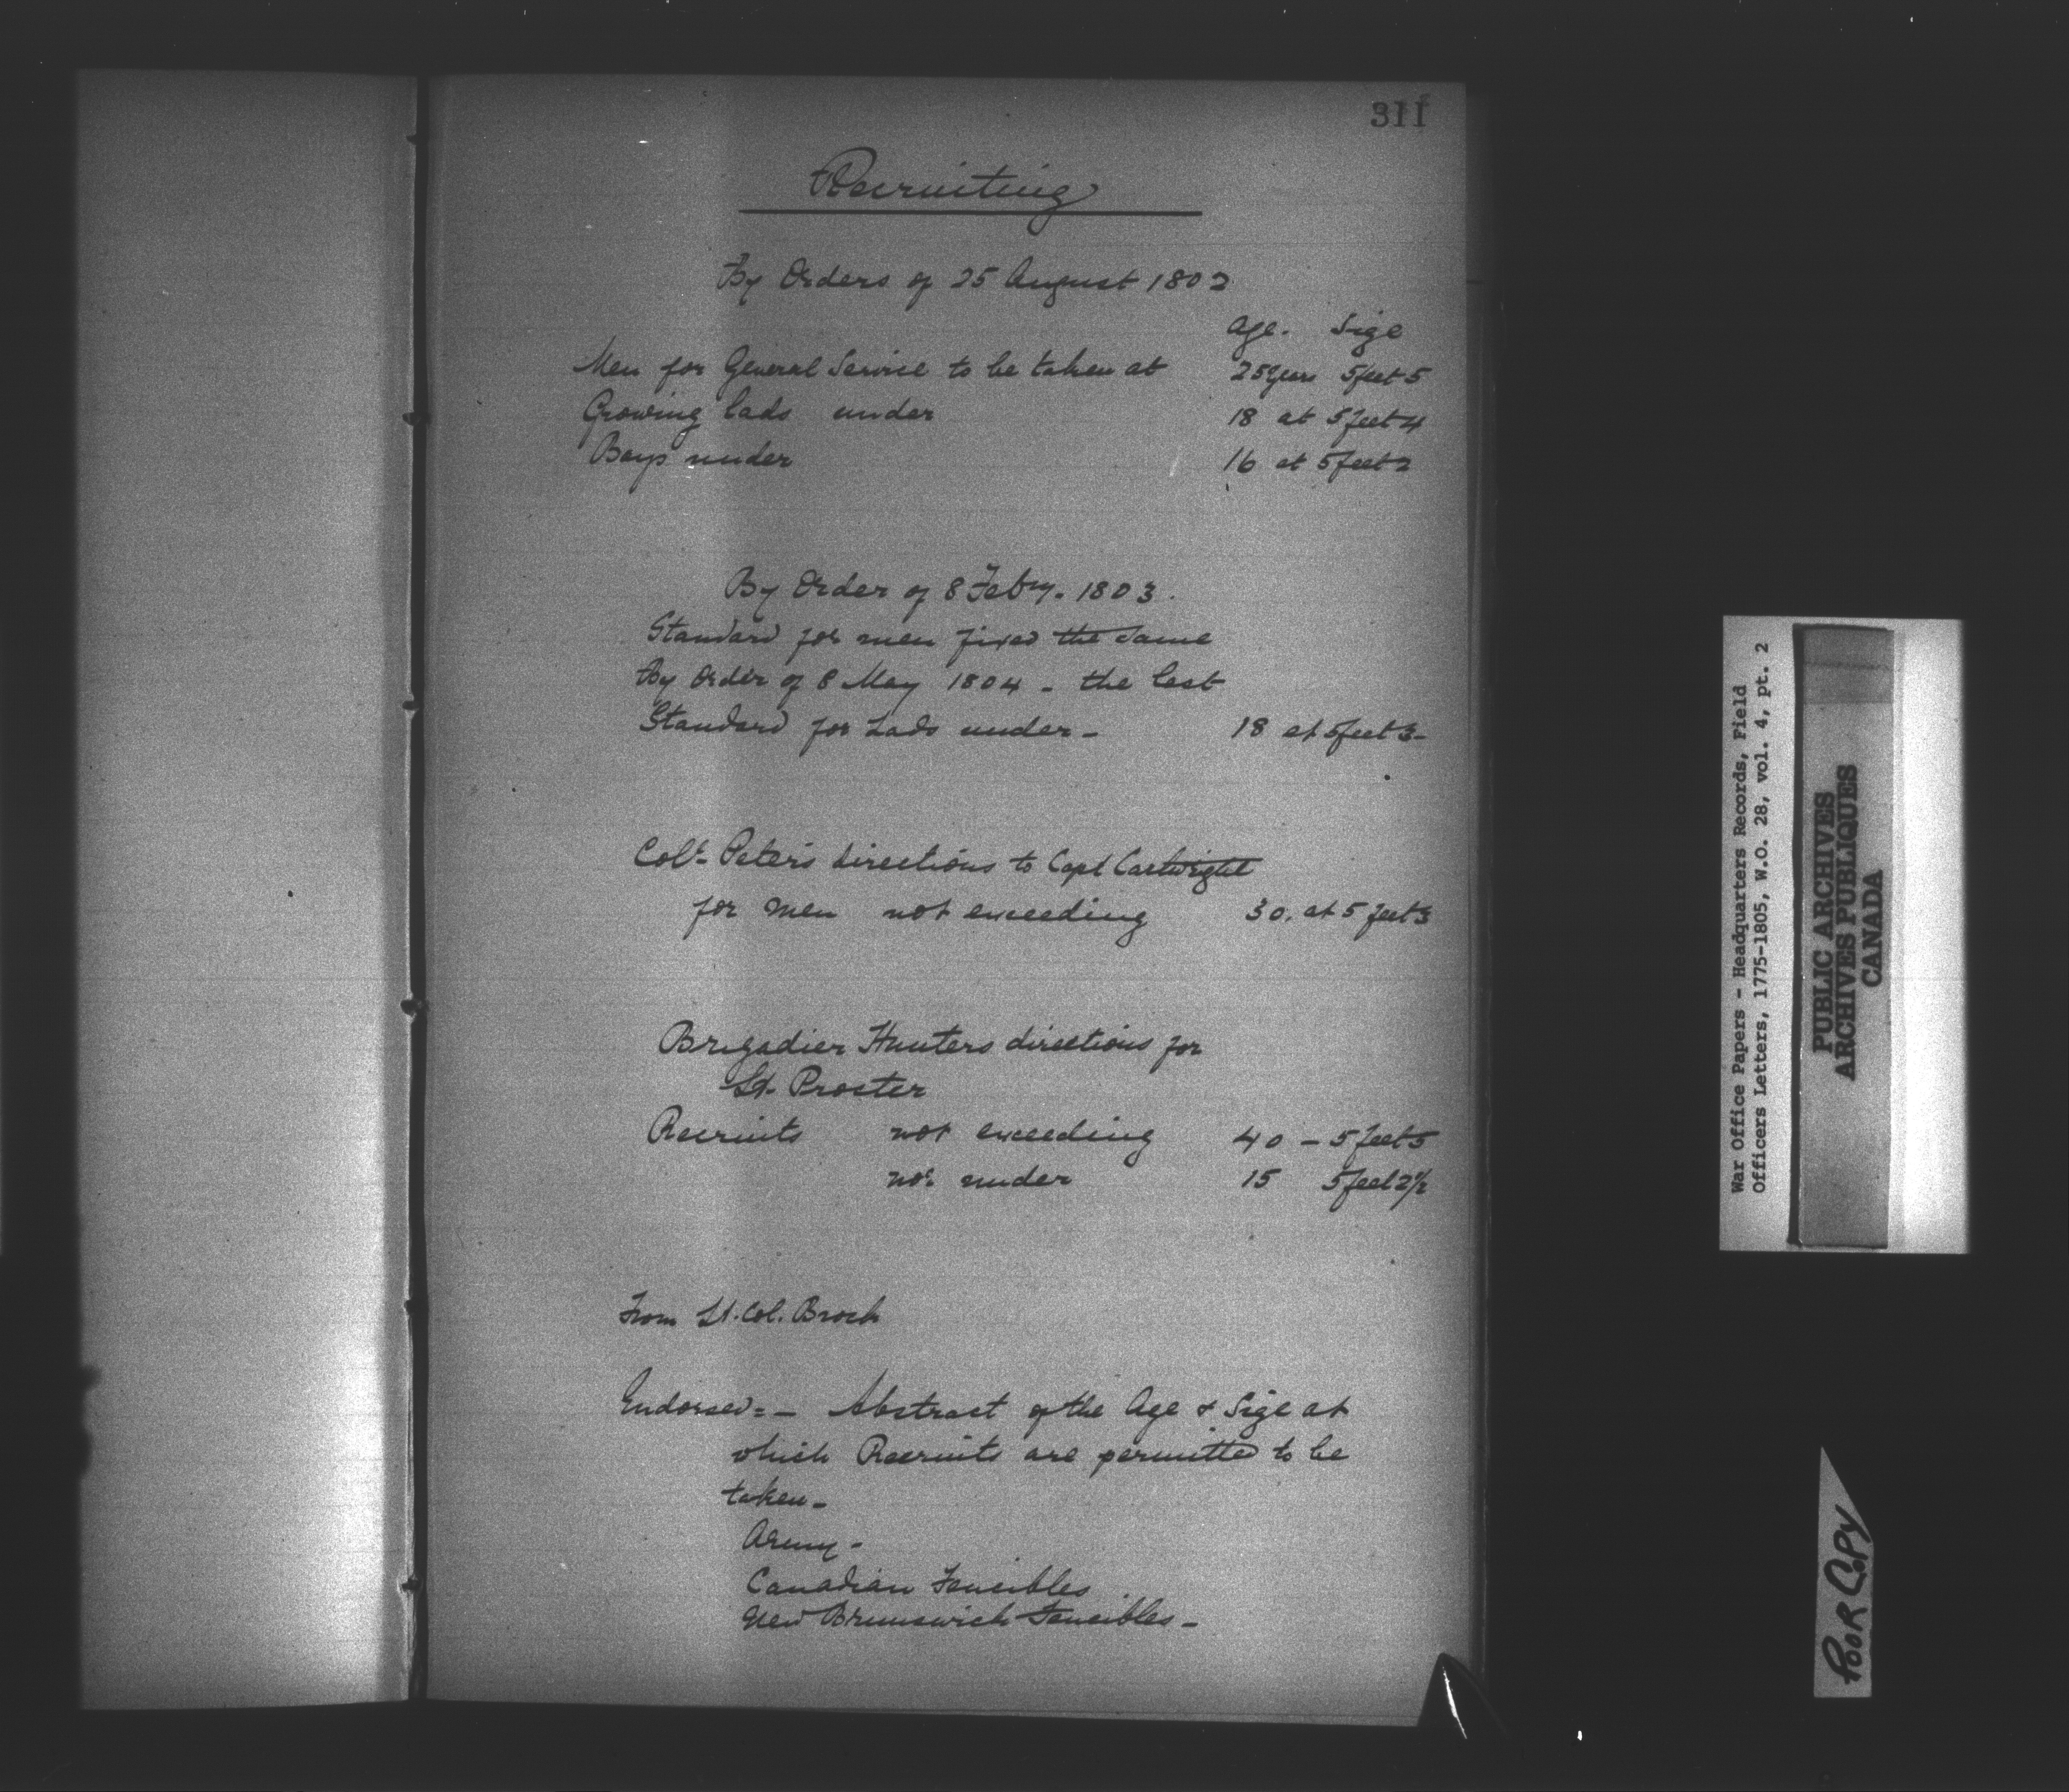 311
Recruiting
By Orders of 25 August 1802
Age. Size
Men for General Service to be taken at 25 Years 5 feet 5
Growing lads under 18 at 5 feet 4
Boys under 16 at 5 feet 2
By Order of 8 Feby. 1803.
Standard for men fixed the same
By Order of 8 May 1804 - the last
Standard for Lads under - 18 at 5 feet 3 -
Colt. Peters directions to Capt Cartwright
for men not exceeding 30. at 5 feet 3
Brigadier Hunters directions for
Lt. Proster
Recruits not exceeding 40 - 5 feet 5
not under 15 5 feet 2½
From Lt. Col. Brock
Endorsed: - Abstract of the Age & Size at
which Recruits are permitted to be
taken -
Army -
Canadian Fencibles
New Brunswick Fencibles -
War Office Papers - Headquarters Records, Field
Officers Letters, 1775-1805, W.O. 28, vol. 4, pt. 2
PUBLIC ARCHIVES
ARCHIVES PUBLIQUES
CANADA
POOR COPY